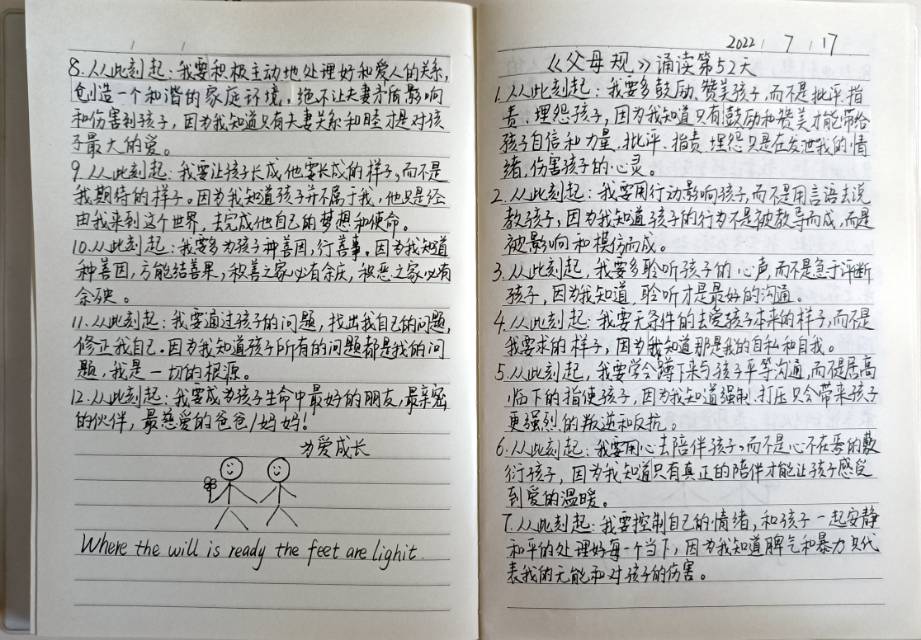 2022 / 7 / 17
《父母规》诵读第52天
1.从此刻起：我要多鼓励、赞美孩子，而不是批评、指
责、埋怨孩子，因为我知道只有鼓励和赞美才能带给
孩子自信和力量，批评、指责、埋怨只是在发泄我的情
绪，伤害孩子的心灵。
2.从此刻起：我要用行动影响孩子，而不是用言语去说
教孩子，因为我知道孩子的行为不是被教导而成，而是
被影响和模仿而成。
3.从此刻起，我要多聆听孩子的心声，而不是急于评断
孩子，因为我知道，聆听才是最好的沟通。
4.从此刻起：我要无条件的去爱孩子本来的样子，而不是
我要求的样子，因为我知道那是我的自私和自我。
5.从此刻起，我要学会蹲下来与孩子平等沟通，而不是居高
临下的指使孩子，因为我知道强制、打压只会带来孩子
更强烈的叛逆和反抗。
6.从此刻起：我要用心去陪伴孩子，而不是心不在焉的敷
衍孩子，因为我知道只有真正的陪伴才能让孩子感受
到爱的温暖。
7.从此刻起：我要控制自己的情绪，和孩子一起安静
和平的处理好每一个当下，因为我知道脾气和暴力只代
表我的无能和对孩子的伤害。
/ /
8.从此刻起：我要积极主动地处理好和爱人的关系，
创造一个和谐的家庭环境，绝不让夫妻矛盾影响
和伤害到孩子，因为我知道只有夫妻关系和睦才是对孩
子最大的爱。
9.从此刻起：我要让孩子长成他要长成的样子，而不是
我期待的样子。因为我知道孩子并不属于我，他只是经
由我来到这个世界，去完成他自己的梦想和使命。
10.从此刻起：我要多为孩子种善因，行善事。因为我知道
种善因，方能结善果，积善之家必有余庆，积恶之家必有
余殃。
11.从此刻起：我要通过孩子的问题，找出我自己的问题，
修正我自己。因为我知道孩子所有的问题都是我的问
题，我是一切的根源。
12.从此刻起：我要成为孩子生命中最好的朋友，最亲密
的伙伴，最慈爱的爸爸/妈妈！
为爱成长
Where the will is ready the feet are lighit.